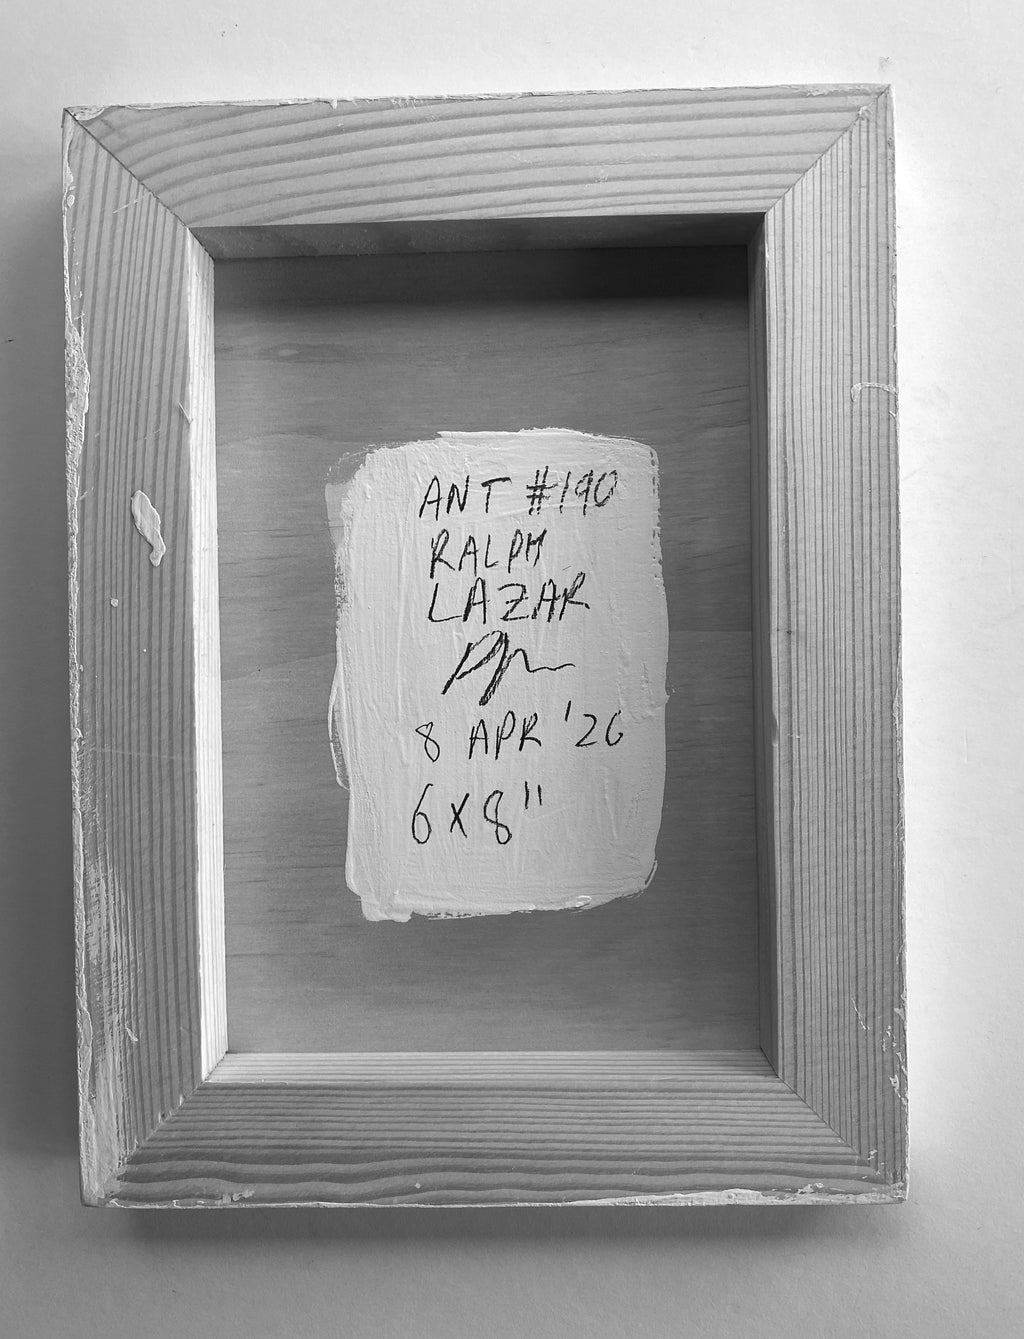 ANT #190
RALPH
LAZAR
8 APR '26
6 x 8"